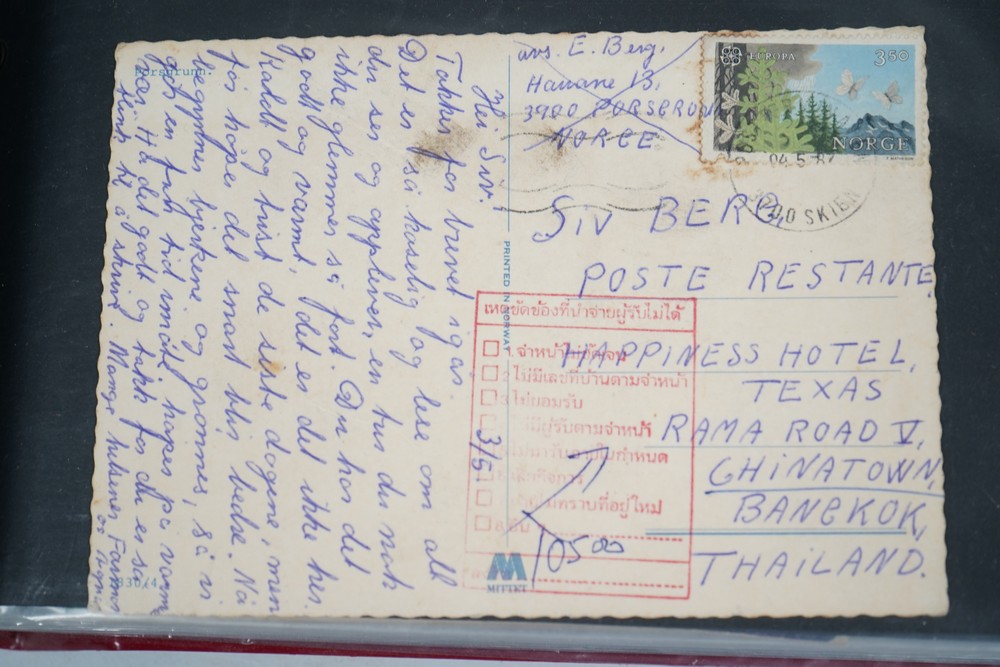 Porsgrunn.
Hei Siv!
Takk for brevet igår.
Det er så koselig og lese om alt
du ser og opplever, en tur du nok
ikke glemmer så fort. Du har det
godt og varmt, det er det ikke her.
Kaldt og trist de siste dagene, men
jós håpes det snart blir bedre. Nå
begynner bjerkene og grønnes, så vi
går en fin tid imøt, håper på varme
Ha det godt og takk for du er så
flink til å skrive. Mange hilsener Farmor
og
avs. E. Berg,
Hauane 13,
3900 PORSGRUNN
NORGE
EUROPA
350
NORGE
04.5.87
3700 SKIEN
SIV BERG,
POSTE RESTANTE,
HAPPINESS HOTEL,
TEXAS
RAMA ROAD V,
CHINATOWN,
BANGKOK,
THAILAND.
PRINTED IN NORWAY
เหตุขัดข้องที่นำจ่ายผู้รับไม่ได้
1. จ่าหน้าไม่ชัดเจน
2 ไม่มีเลขที่บ้านตามจ่าหน้า
3 ไม่ยอมรับ
ไม่มีผู้รับตามจ่าหน้า
ไม่มารับภายในกำหนด
เลิกกิจการ
ไม่ทราบที่อยู่ใหม่
8. อื่น ๆ
3/5
10500
M
MITTET